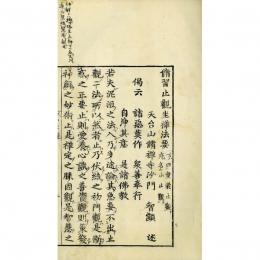 脩習止觀坐禪法要
天台山脩禪寺沙門 智顗 述
偈云 諸惡莫作 衆善奉行
自淨其意 是諸佛教
若夫泥洹之法入乃多途論其急要不出止
觀二法所以然者止乃伏結之初門觀是斷
惑之正要止則愛養心識之善資觀則策發
神解之妙術止是禪定之勝因觀是智慧之